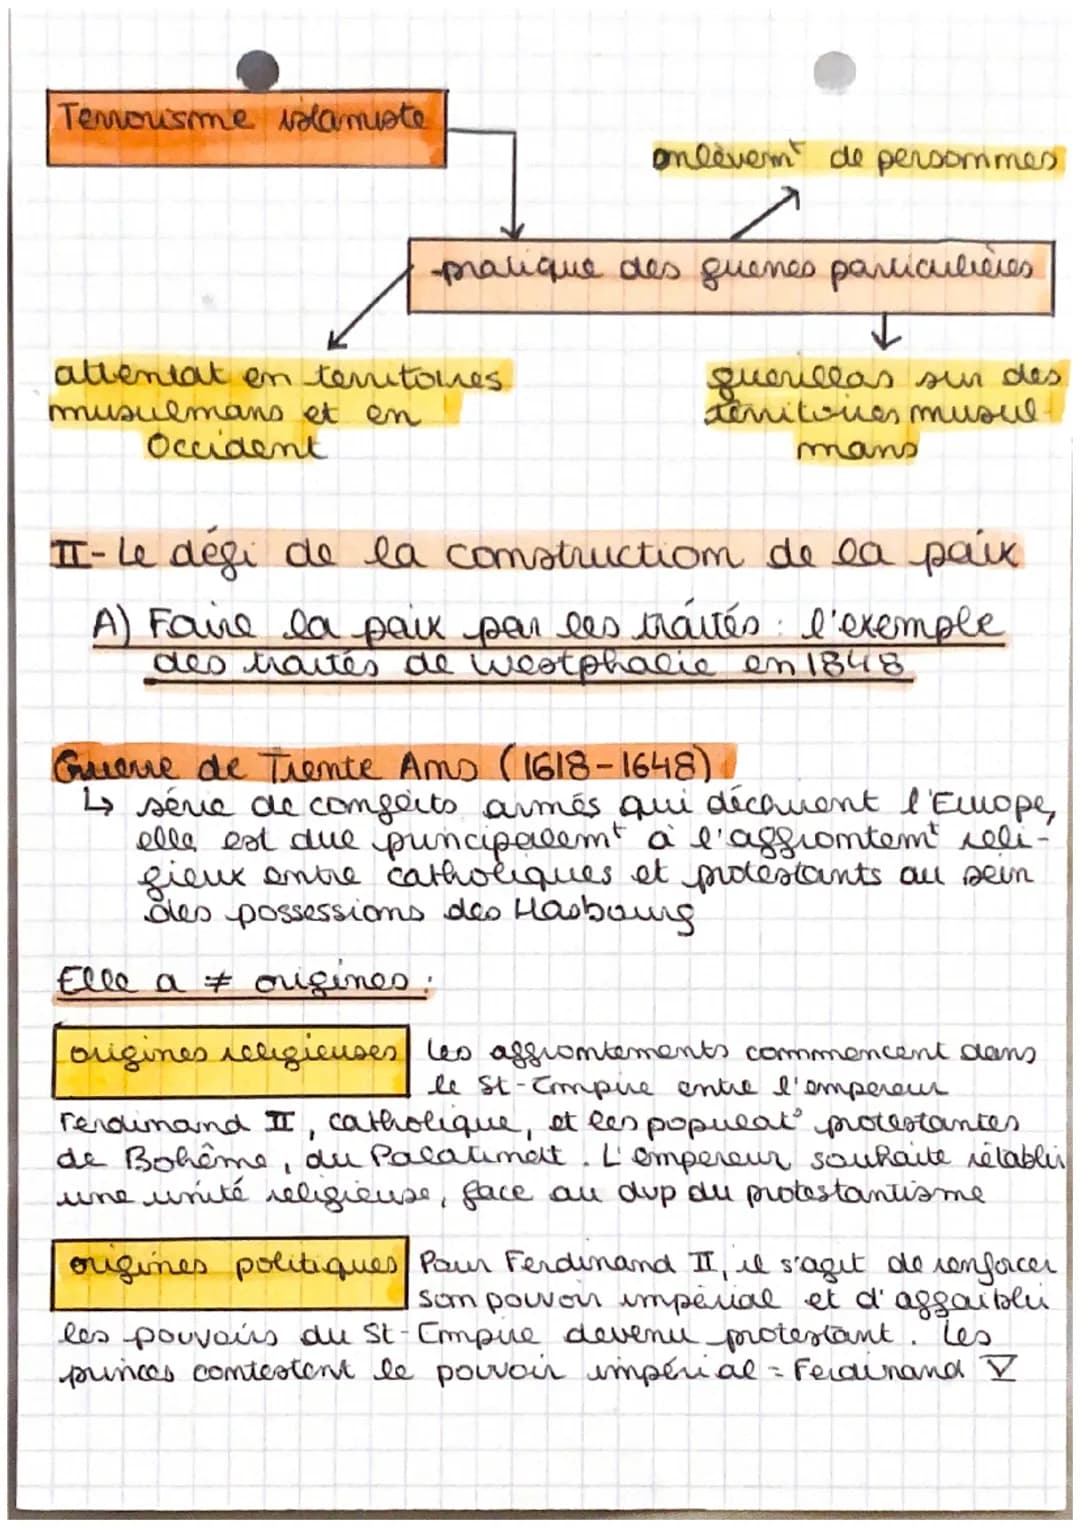 Terrorisme islamiste
enlèvemt de personnes
-pratique des guerres particulières
attentat en territoires
musulmans et en
Occident
guerillas sur des
territoires musul-
mans
II- Le défi de la construction de la paix
A) Faire la paix par les traités : l'exemple
des traités de Westphalie en 1848
Guerre de Trente Ans (1618-1648)
↳ série de conflits armés qui déchirent l'Europe,
elle est due principalemt à l'affrontemt reli-
gieux entre catholiques et protestants au sein
des possessions des Hasbourg
Elle a ≠ origines :
origines religieuses Les affrontements commencent dans
le St-Empire entre l'empereur
Ferdinand II, catholique, et les populat° protestantes
de Bohême, du Palatinat. L'empereur souhaite rétablir
une unité religieuse, face au dvp du protestantisme
origines politiques Pour Ferdinand II, il s'agit de renforcer
son pouvoir impérial et d'affaiblir
les pouvoirs du St-Empire devenu protestant. Les
princes contestent le pouvoir impérial = Ferdinand V